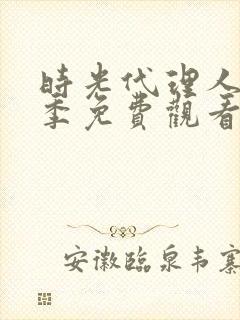 時光代理人
季免費觀看
安徽臨泉韦寨